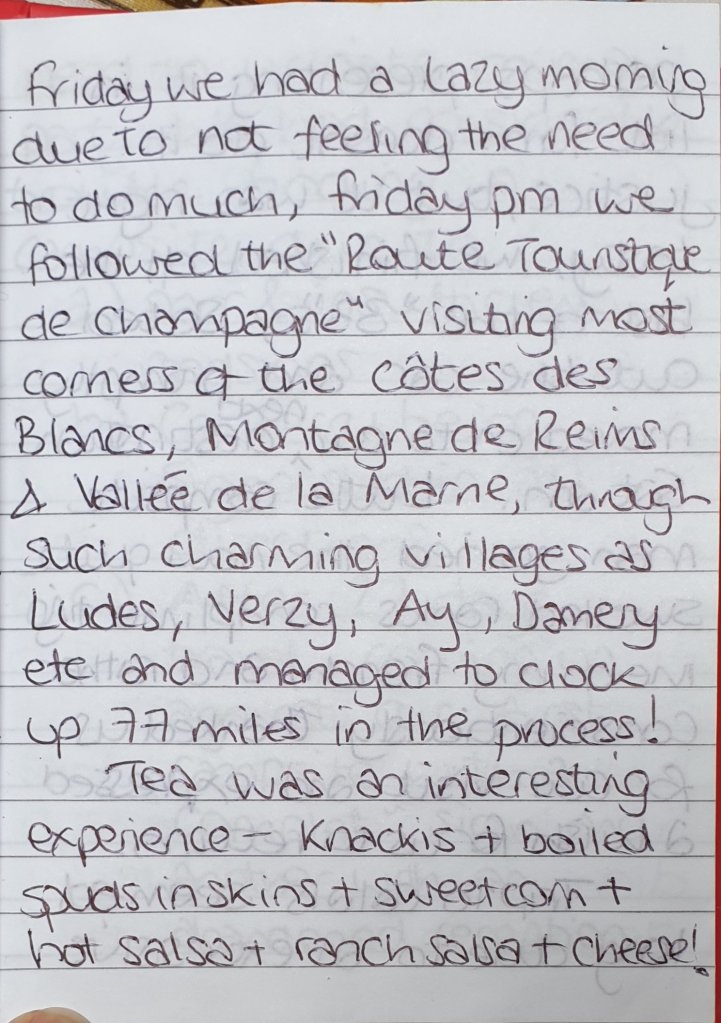 friday we had a lazy morning
due to not feeling the need
to do much, friday pm we
followed the "Route Touristique
de Champagne" visiting most
corners of the côtes des
Blancs, Montagne de Reims
& Vallée de la Marne, through
such charming villages as
Ludes, Verzy, Ay, Damery
etc and managed to clock
up 77 miles in the process!
Tea was an interesting
experience - Knackis + boiled
spuds in skins + sweetcorn +
hot salsa + ranch salsa + cheese!